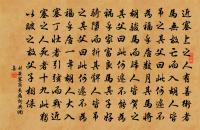 近塞上之人有善術者
馬無故亡而入胡人皆
弔之其父曰此何遽不
為福乎居數月其馬將
胡駿馬而歸人皆賀之
其父曰此何遽不能為
禍乎家富良馬其子好
騎墮而折其髀人皆弔
之其父曰此何遽不為
福乎居一年胡人大入
塞丁壯者引弦而戰近
塞之人死者十九此獨
以跛之故父子相保